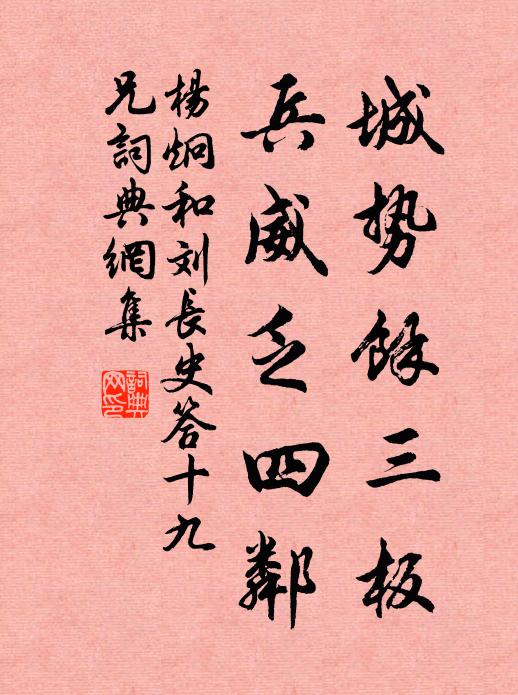 城势餘三板
兵威乏四鄰
楊炯和刘長史答十九
兄詞典網集
詞典
网印